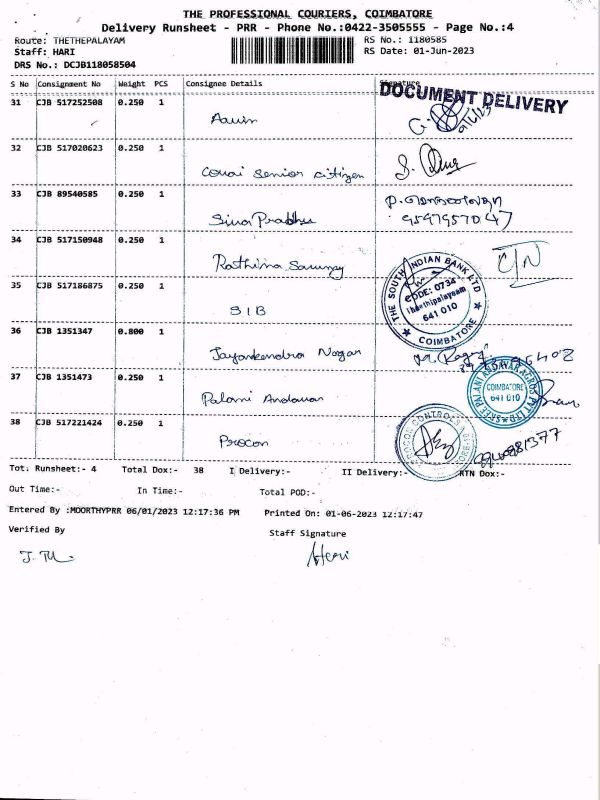 THE PROFESSIONAL COURIERS, COIMBATORE
Delivery Runsheet - PRR - Phone No.:0422-3505555 - Page No.:4
Route: THETHEPALAYAM
RS No.: 1180585
Staff: HARI
RS Date: 01-Jun-2023
DRS No.: DCJB118058504
S No Consignment No Weight PCS Consignee Details Signature
DOCUMENT DELIVERY
31 CJB 517252508 0.250 1
Aavin
32 CJB 517020623 0.250 1
Covai Senior Citizen
33 CJB 89540585 0.250 1
Siva Prabhu
34 CJB 517150948 0.250 1
Rathina Samy
35 CJB 517186875 0.250 1
SIB
THE SOUTH INDIAN BANK LTD
CODE: 0734
Theethipalayam
641 010
COIMBATORE
36 CJB 1351347 0.800 1
Jayankendra Nagar
37 CJB 1351473 0.250 1
Palani Andavar
COIMBATORE
641 010
38 CJB 517221424 0.250 1
Procon
Tot: Runsheet:- 4 Total Dox:- 38 I Delivery:- II Delivery:- RTN Dox:-
Out Time:- In Time:- Total POD:-
Entered By :MOORTHYPRR 06/01/2023 12:17:36 PM Printed On: 01-06-2023 12:17:47
Verified By
Staff Signature
Hari